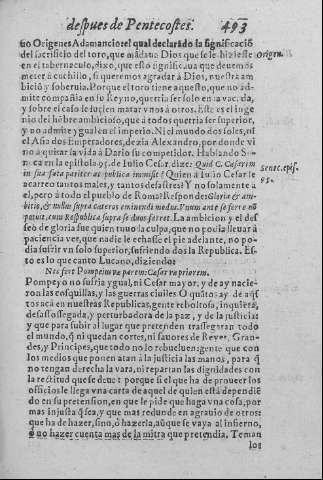 despues de Pentecostes. 493
tio Origenes Adamancio: el qual declarãdo la significació
del sacrificio del toro, que mãdaua Dios que se le hiziesse
en el tabernaculo, dize, que esto significaua que deuemos
meter à cuchillo, si queremos agradar à Dios, nuestra am
bició y soberuia. Porque el toro tiene aquesto, que no ad-
mite compañia en su Reyno, querria ser solo en la vacada,
y sobre el caso se suelen matar vnos à otros. Este es el inge
nio del hõbre ambicioso, que à todos querria ser superior,
y no admite ygual en el imperio. Ni el mundo dos soles, ni
el Asia dos Emperadores, dezia Alexandro, por donde vi
no à quitar la vida à Dario su competidor. Hablando Se-
neca en la epistola 95. de Iulio Cesar, dize: Quid C. Cæsarem
in sua fata pariter ac publica immisit? Quien à Iulio Cesar le
acarreo tantos males, y tantos desastres? Y no solamente a
el, pero à todo el pueblo de Roma? Responde: Gloria & am-
bitio, & nullus supra cæteros eminendi modus. Vnum ante se ferre nõ
potuit, cum Respublica supra se duos ferret. La ambicion y el des
seo de gloria fue quien tuuo la culpa, que no podia lleuar à
paciencia ver, que nadie le echasse el pie adelante, no po-
dia sufrir vn solo superior, sufriendo dos la Republica. Es-
to es lo que canto Lucano, diziendo:
Nec fert Pompeius parem: Cæsar ve priorem.
Pompeyo no sufria ygual, ni Cesar mayor, y de ay nacie-
ron las cosquillas, y las guerras ciuiles. O quãtos ay de aq̃l
toscacã en nuestras Republicas, gente reboltosa, inquieta,
desassossegada, y perturbadora de la paz, y de la justicia:
y que para subir al lugar que pretenden trassegaran todo
el mundo, q̃ ni quedan cortes, ni fauores de Reyes, Gran-
des, y Principes, que todo no lo rebueluen: gente que con
los medios que ponen atan à la justicia las manos, para q̃
no tengan derecha la vara, ni repartan las dignidades con
la rectitud que se deue: porque si el que ha de proueer los
officios le llega vna carta de aquel de quien està dependiẽ
do en su pretension, en que le pide que haga vna cosa, por
mas injusta q̃ sea, y que mas redunde en agrauio de otros:
que ha de hazer, sino, ò hazerla, aũque se vaya al infierno,
ò no hazer cuenta mas de la mitra que pretendia. Teman
los
Origen.
Senec. epis.
95.